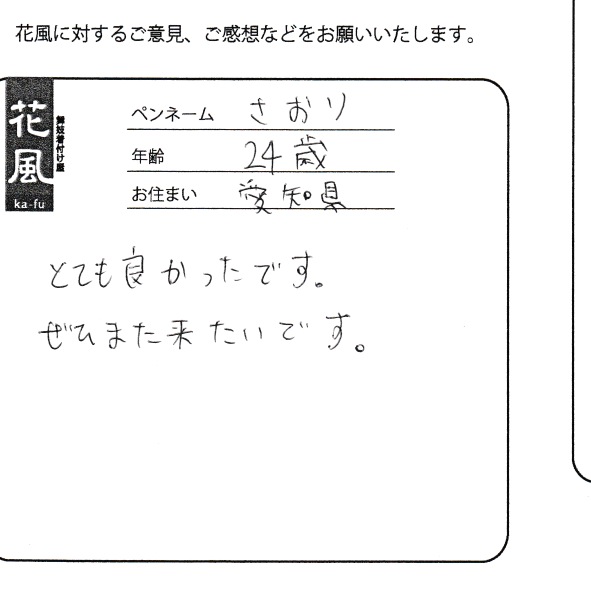 花風に対するご意見、ご感想などをお願いいたします。
花風
ka-fu
舞妓着付け屋
ペンネーム さおり
年齢 24歳
お住まい 愛知県
とても良かったです。
ぜひまた来たいです。